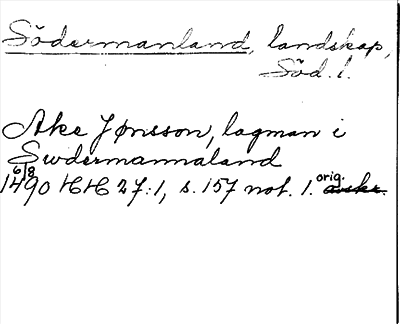 Södermanland, landskap,
Söd. l.
Ake Jønsson, lagman i
Swdermannaland
6/8
1490 HH 27:1, s. 157 not. 1. orig.